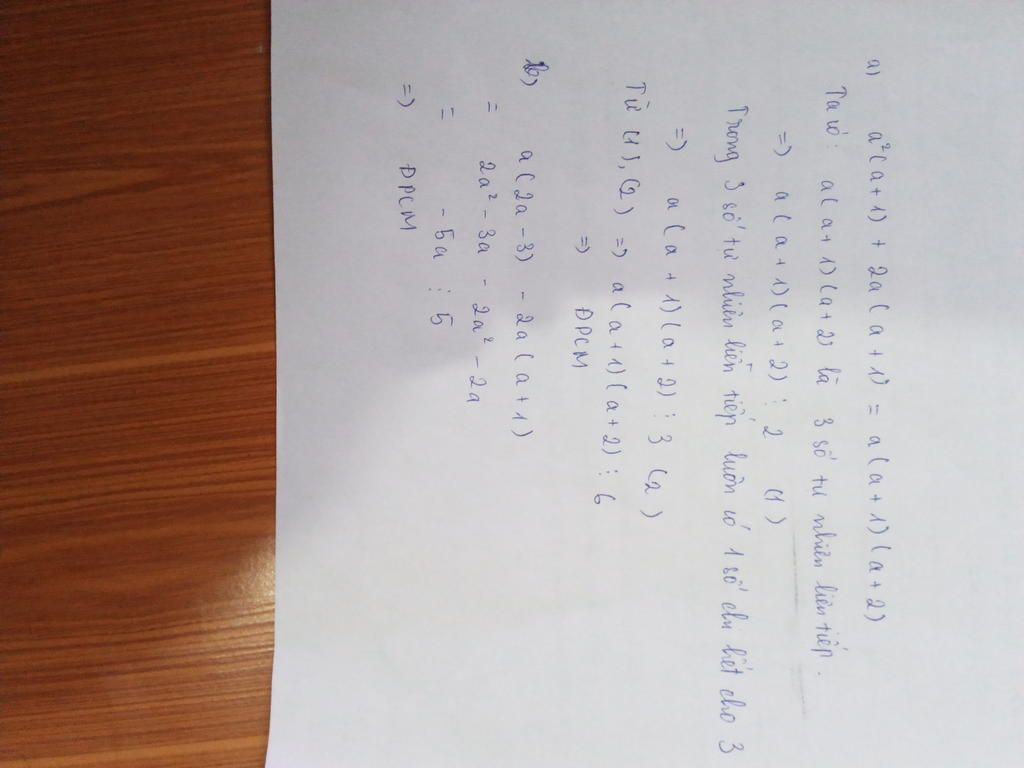 a) a²(a+1) + 2a(a+1) = a(a+1)(a+2)
Ta có: a(a+1)(a+2) là 3 số tự nhiên liên tiếp.
=) a(a+1)(a+2) ⋮ 2 (1)
Trong 3 số tự nhiên liên tiếp luôn có 1 số chia hết cho 3
=) a(a+1)(a+2) ⋮ 3 (2)
Từ (1), (2) =) a(a+1)(a+2) ⋮ 6
=) ĐPCM
b) a(2a-3) - 2a(a+1)
= 2a² - 3a - 2a² - 2a
= - 5a ⋮ 5
=) ĐPCM